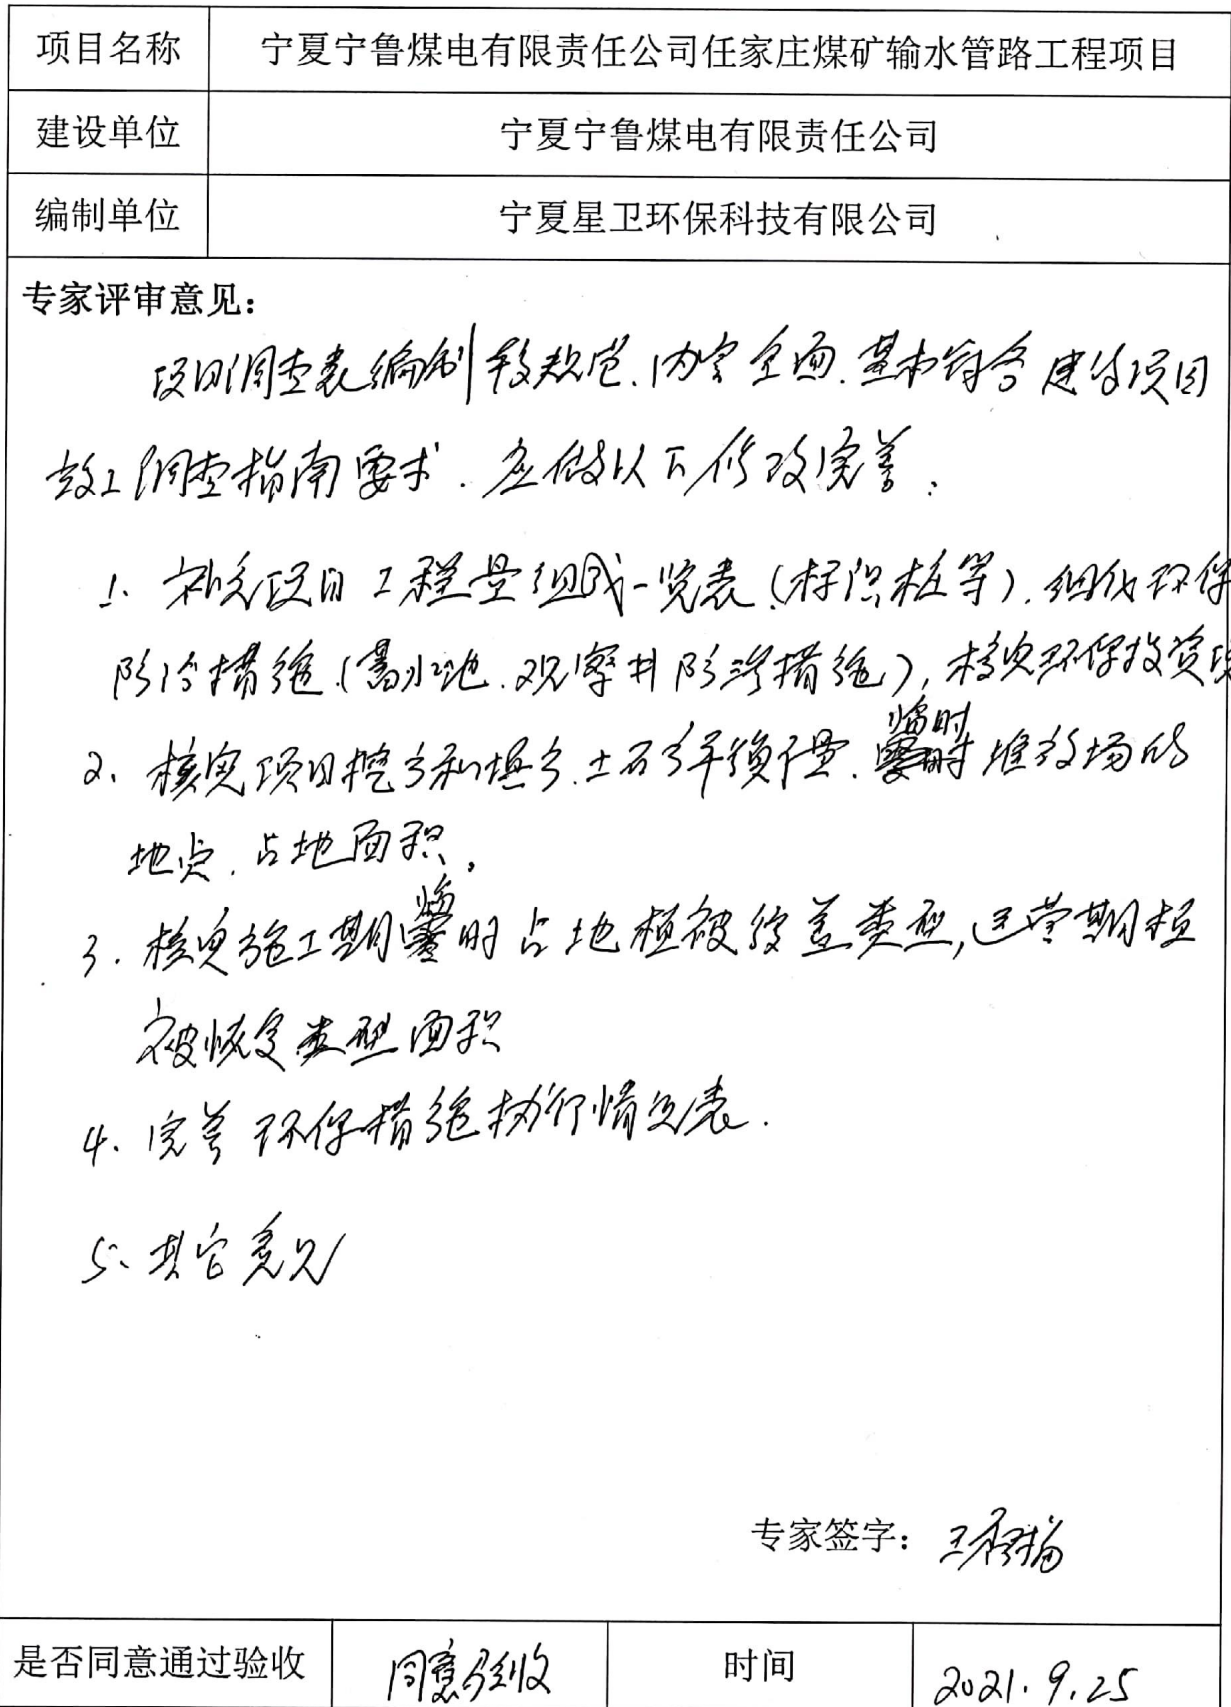 项目名称 宁夏宁鲁煤电有限责任公司任家庄煤矿输水管路工程项目
建设单位 宁夏宁鲁煤电有限责任公司
编制单位 宁夏星卫环保科技有限公司
专家评审意见：
项目调查表编制较规范、内容全面、基本符合建设项目
竣工调查指南要求．应做以下修改完善：
1、补充项目工程量组成一览表（标识桩等）．细化环保
防治措施（蓄水池、观察井防渗措施），核实环保投资
2、核实项目挖方和填方、土石方平衡量、临时堆放场的
地点、占地面积。
3、核实施工期临时占地植被覆盖类型，运营期植
被恢复类型面积
4、完善环保措施执行情况表．
5、其它意见
专家签字：
是否同意通过验收 同意验收 时间 2021.9.25